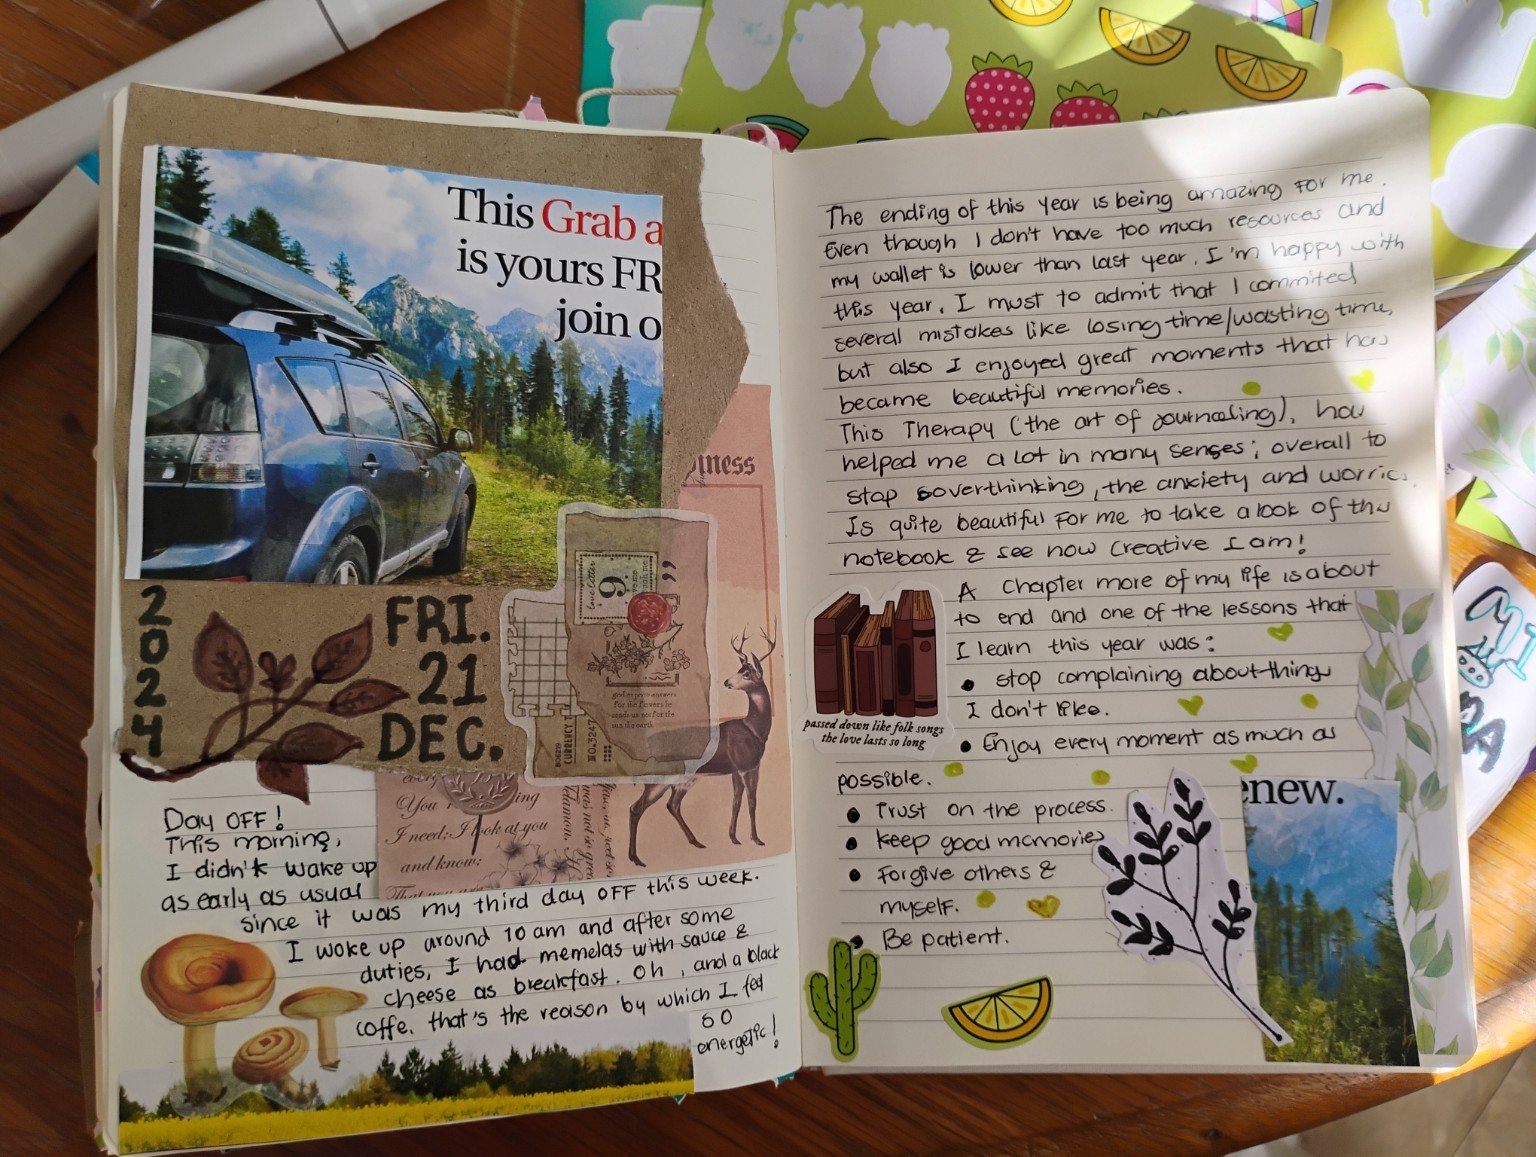 This Grab a
is yours FR
join o
piness
2024
FRI.
21
DEC.
love letter
9
god is perto answers
For the flowers he
sends us not for the
sun the earth
CURRENCY
NO.3247
You
ing
I need; I look at you
and know:
Day OFF!
This morning,
I didn't wake up
as early as usual
since it was my third day OFF this week.
I woke up around 10 am and after some
duties, I had memelas with sauce &
cheese as breakfast. Oh, and a black
coffe. that's the reason by which I feel
so
energetic!
The ending of this year is being amazing For me.
Even though I don't have too much resources and
my wallet is lower than last year, I'm happy with
this year. I must to admit that I commited
several mistakes like losing time/wasting time,
but also I enjoyed great moments that has
became beautiful memories.
This Therapy (the art of journaling), has
helped me a lot in many senses; overall to
stop overthinking, the anxiety and worries.
Is quite beautiful For me to take a look of this
notebook & see how creative I am!
A Chapter more of my life is about
to end and one of the lessons that
I learn this year was:
• stop complaining about things
I don't like.
• Enjoy every moment as much as
possible.
• Trust on the process.
• Keep good memories
• Forgive others &
myself.
• Be patient.
passed down like folk songs
the love lasts so long
enew.
MI